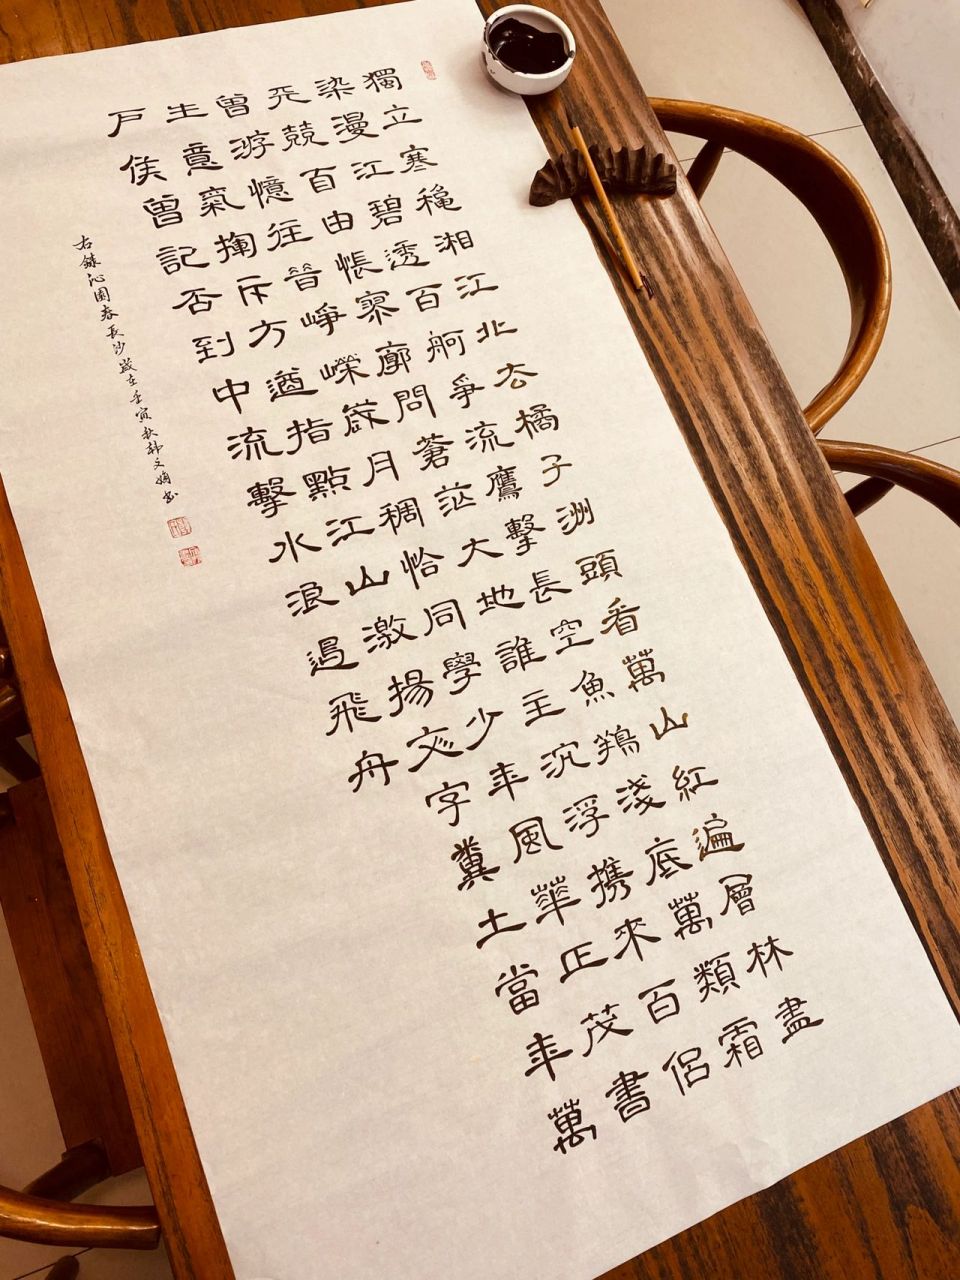 獨立寒穐湘江北去橘子洲頭看萬山紅遍層林盡
染漫江碧透百舸爭流鷹擊長空魚鴹淺底萬類霜
天競自由悵寥廓問蒼茫大地誰主沉浮携來百侶
曾游憶往昔崢嶸歲月稠恰同學少年風華正茂書
生意氣揮斥方遒指點江山激揚文字糞土當年萬
戶侯曾記否到中流擊水浪遏飛舟
右錄沁園春長沙歲在壬寅秋韩文娟書